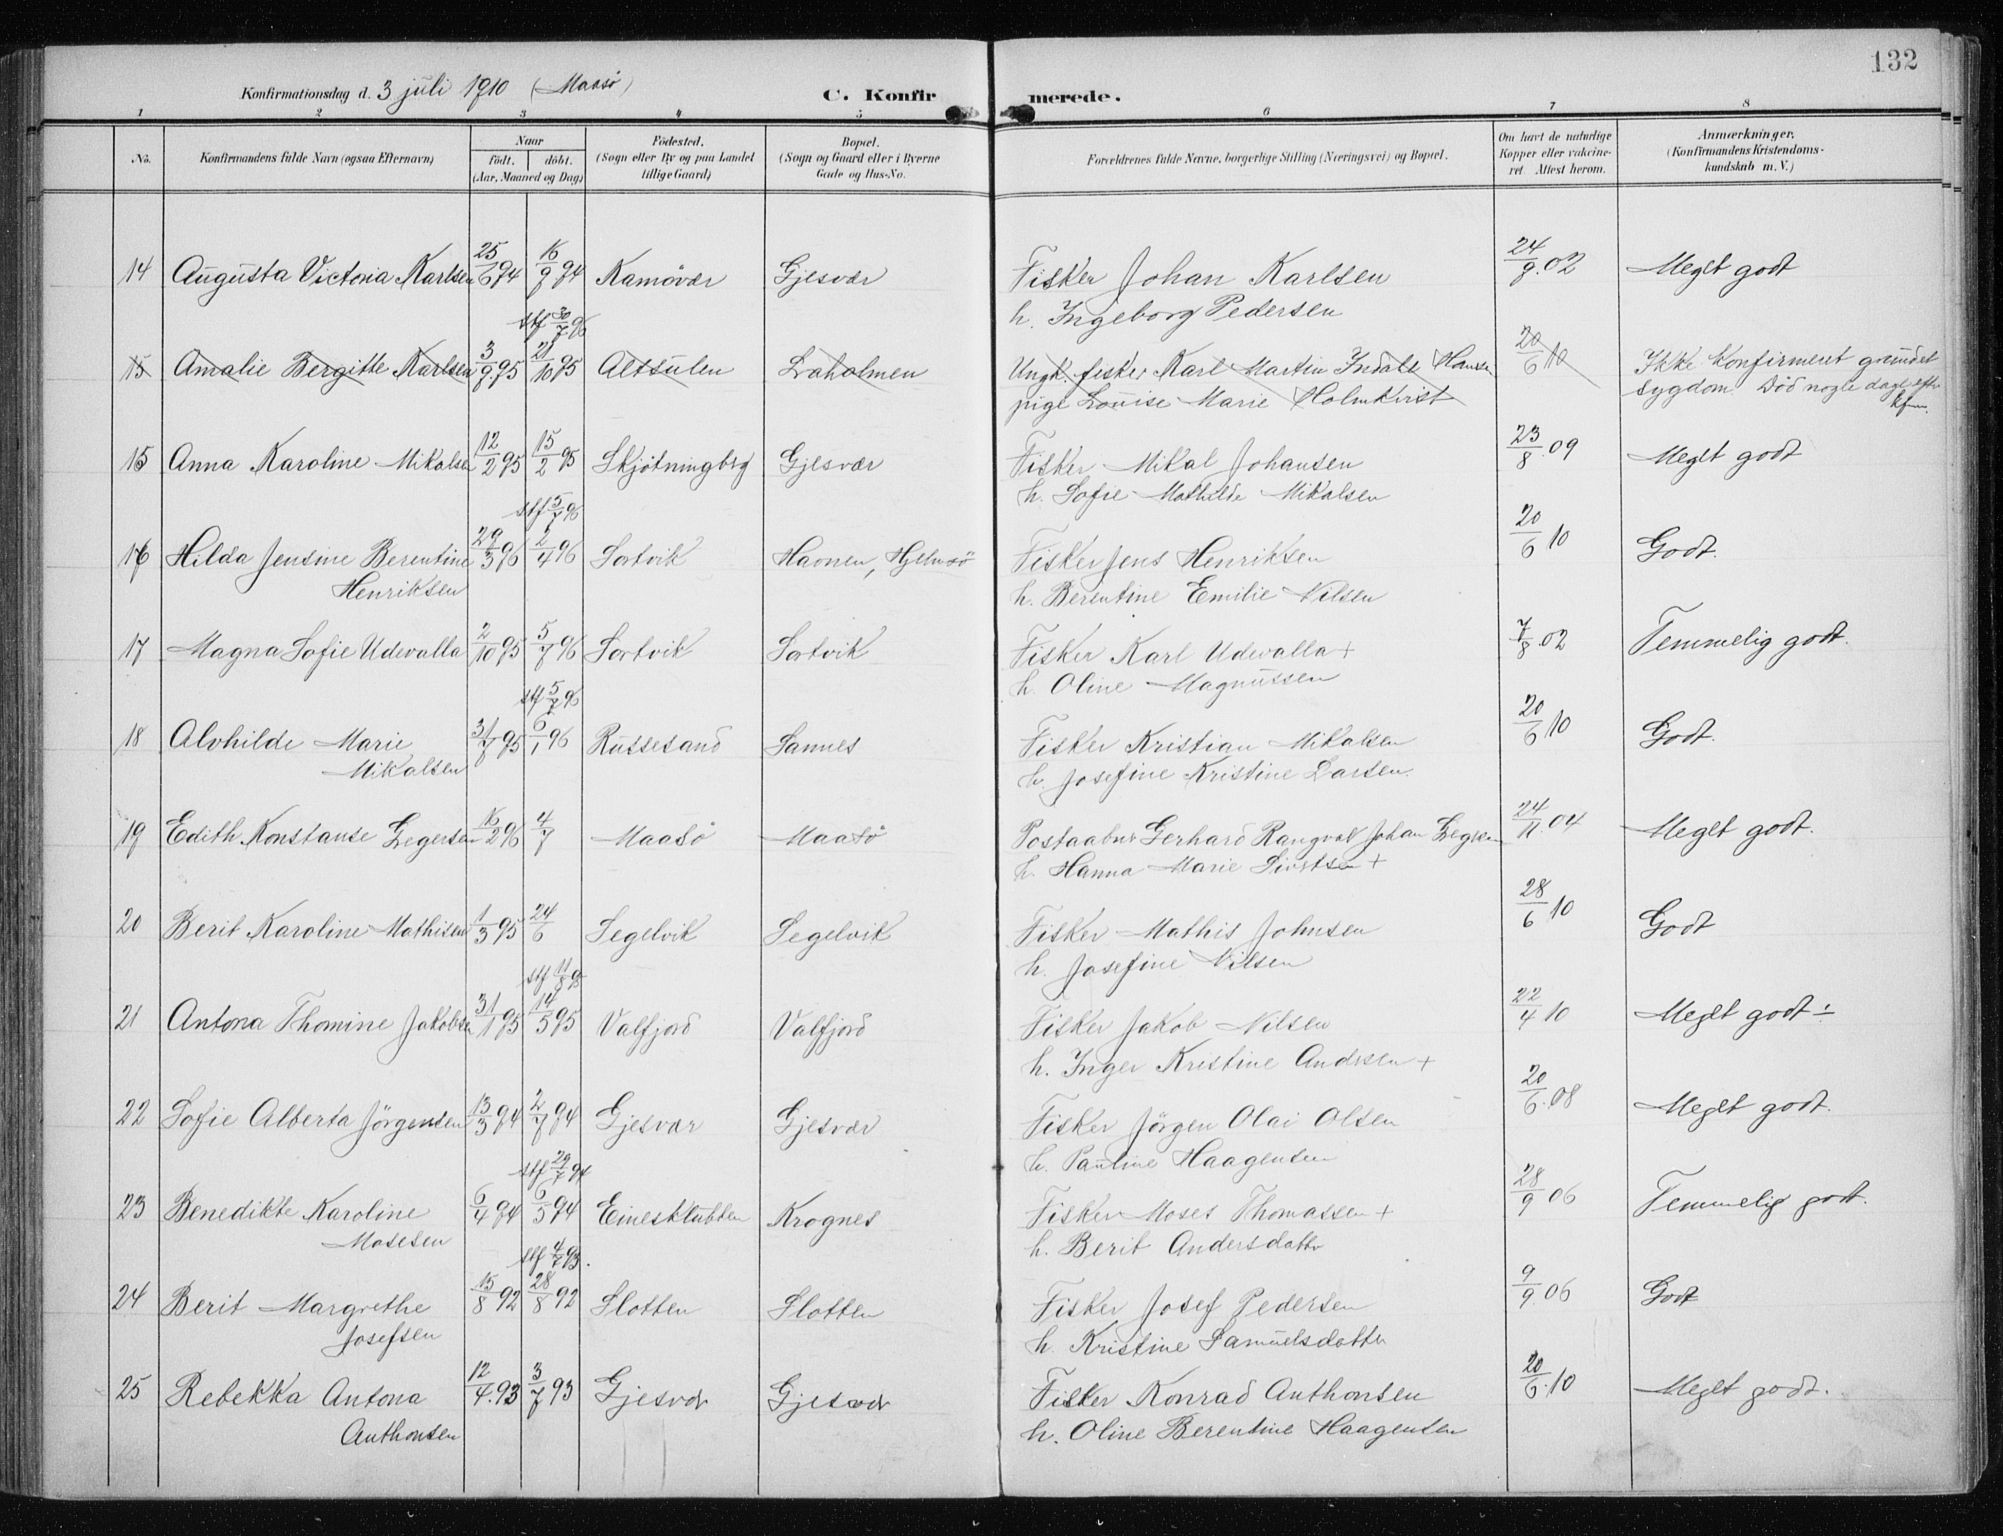 132
Konfirmationsdag d. 3 juli 1910 (Maasø)
C. Konfirmerede.
1 2 3 4 5 6 7 8
No. Konfirmandens fulde Navn (ogsaa Efternavn) Naar født. døbt. (Aar, Maaned og Dag) Födested. (Sogn eller By og paa Landet tillige Gaard) Bopæl. (Sogn og Gaard eller i Byerne Gade og Hus-No. Forældrenes fulde Navne, borgerlige Stilling (Næringsvei) og Bopæl. Om havt de naturlige Kopper eller vakcineret. Attest herom. Anmærkninger. (Konfirmandens Kristendomskundskab m. V.)
14 Augusta Victoria Karlsen 25/6 94 16/9 94 Kamøvær Gjesvær Fisker Johan Karlsen 24/9.02 Meget godt
h. Ingeborg Pedersen
stf 30/7 96
15 Amalie Bergitte Karlsen 3/9 95 21/10 95 Altsulen Laholmen Ungk. fisker Karl Martin Indale Hansen 20/6 10 Ikke konfirmeret grundet
pige Louise Marie Holmkvist sygdom. Død nogle dage efter
kfm.
15 Anna Karoline Mikalsen 12/2 95 15/2 95 Skjøtningbrg Gjesvær Fisker Mikal Johansen 23/8.09 Meget godt
h. Sofie Mathilde Mikalsen
stf 5/7 96
16 Hilda Jensine Berentine 29/3 96 2/4 96 Sortvik Havnen, Hjelmsø Fisker Jens Henriksen 20/6 10 Godt.
Henriksen h. Berentine Emilie Nilsen
17 Magna Sofie Udevalla 2/10 95 5/7 96 Sortvik Sortvik Fisker Karl Udevalla + 7/8.02 Temmelig godt.
h. Oline Magnussen
stf 5/7 96
18 Alvhilde Marie 31/7 95 6/1 96 Russesand Sannes Fisker Kristian Mikalsen 20/6 10 Godt.
Mikalsen h. Josefine Kristine Larsen.
19 Edith Konstanse Zegersen 16/2 96 4/7 Maasø Maasø Postaabner Gerhard Rangval Johan Zegersen 24/11.04 Meget godt.
h. Hanna Marie Sivertsen +
20 Berit Karoline Mathisen 1/3 95 24/6 Segelvik Segelvik Fisker Mathis Johnsen 28/6 10 Godt
h. Josefine Nilsen
stf 11/8 95
21 Antona Thomine Jakobsen 31/1 95 14/5 95 Valfjord Valfjord Fisker Jakob Nilsen 22/4 10 Meget godt ÷
h. Inger Kristine Andersen +
22 Sofie Alberta Jörgensen 13/3 94 2/7 94 Gjesvær Gjesvær Fisker Jörgen Olai Olsen 20/6.08 Meget godt.
h. Pauline Haagensen
stf 29/7 94
23 Benedikte Karoline 6/4 94 6/5 94 Einesklubben Krognes Fisker Moses Thomassen + 28/9 06 Temmelig godt.
Mosesen h. Berit Andersdatter
stf 4/7 93.
24 Berit Margrethe 15/8 92 28/8 92 Slotten Slotten Fisker Josef Pedersen 9/9.06 Godt
Josefsen h. Kristine Samuelsdatter
25 Rebekka Antona 12/4.93 3/7 93 Gjesvær Gjesvær Fisker Konrad Anthonsen 20/6.10 Meget godt.
Anthonsen h. Oline Berentine Haagensen